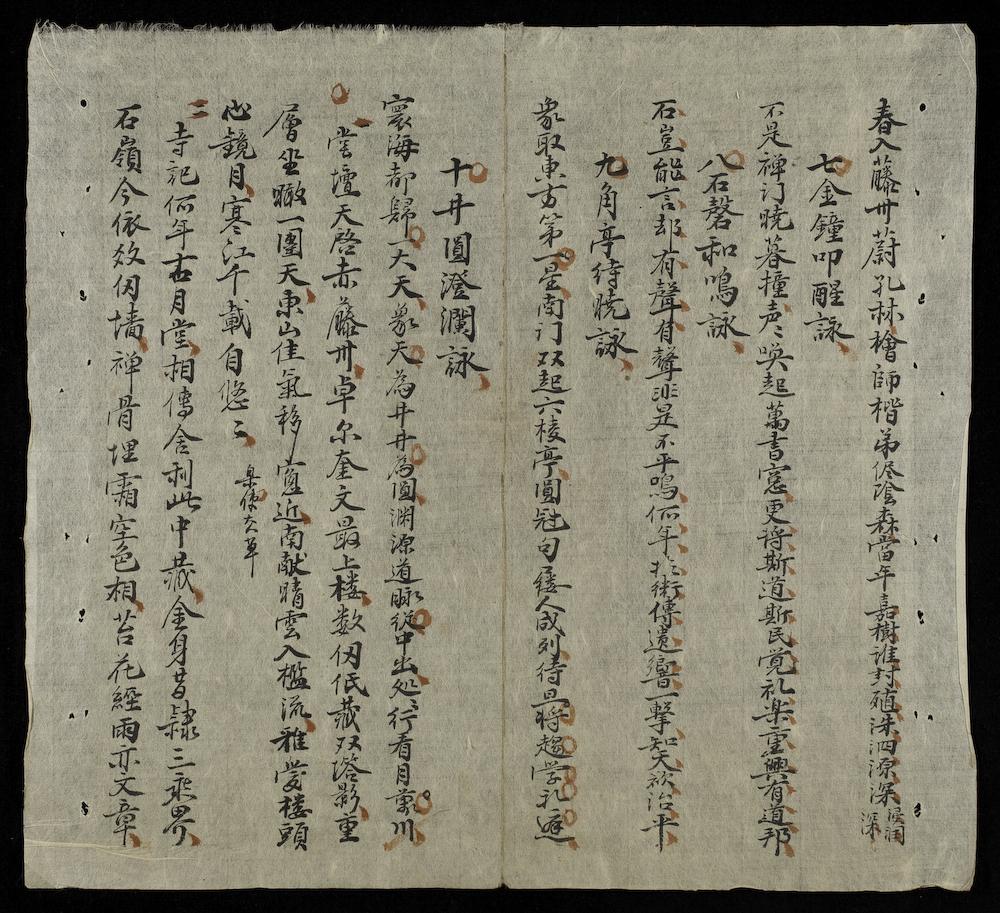 春入藤州蔚孔林檜師楷弟侭陰森當年嘉樹誰封殖洙泗源深浸润深
七金鐘叩醒詠
不是禅门曉暮撞声〻喚起萬書窓更将斯道斯民覚礼楽重興有道邦
八石磬和鳴詠
石豈能言却有聲有聲非是不平鳴何年於衛傳遺響一擊知天欲治平
九角亭待曉詠
象取東方第一星南门双起六棱亭圓冠句屦人成列待旦将趨学礼
十井圓澄瀾詠
寰海都歸一大天象天為井井為圓渊源道脉從中出処〻行看月萬川
一堂壇天啓赤藤州卓尔奎文最上楼数仞低藏双塔影重
層坐瞰一團天東山佳氣移窓近南献晴雲入檻流雅愛楼頭
心鏡月寒江千載自悠〻
二寺記何年古月堂相傳舍利此中藏金身昔隷三乘界
石嶺今依数仞墻禅骨埋霜空色相苔花經雨亦文章